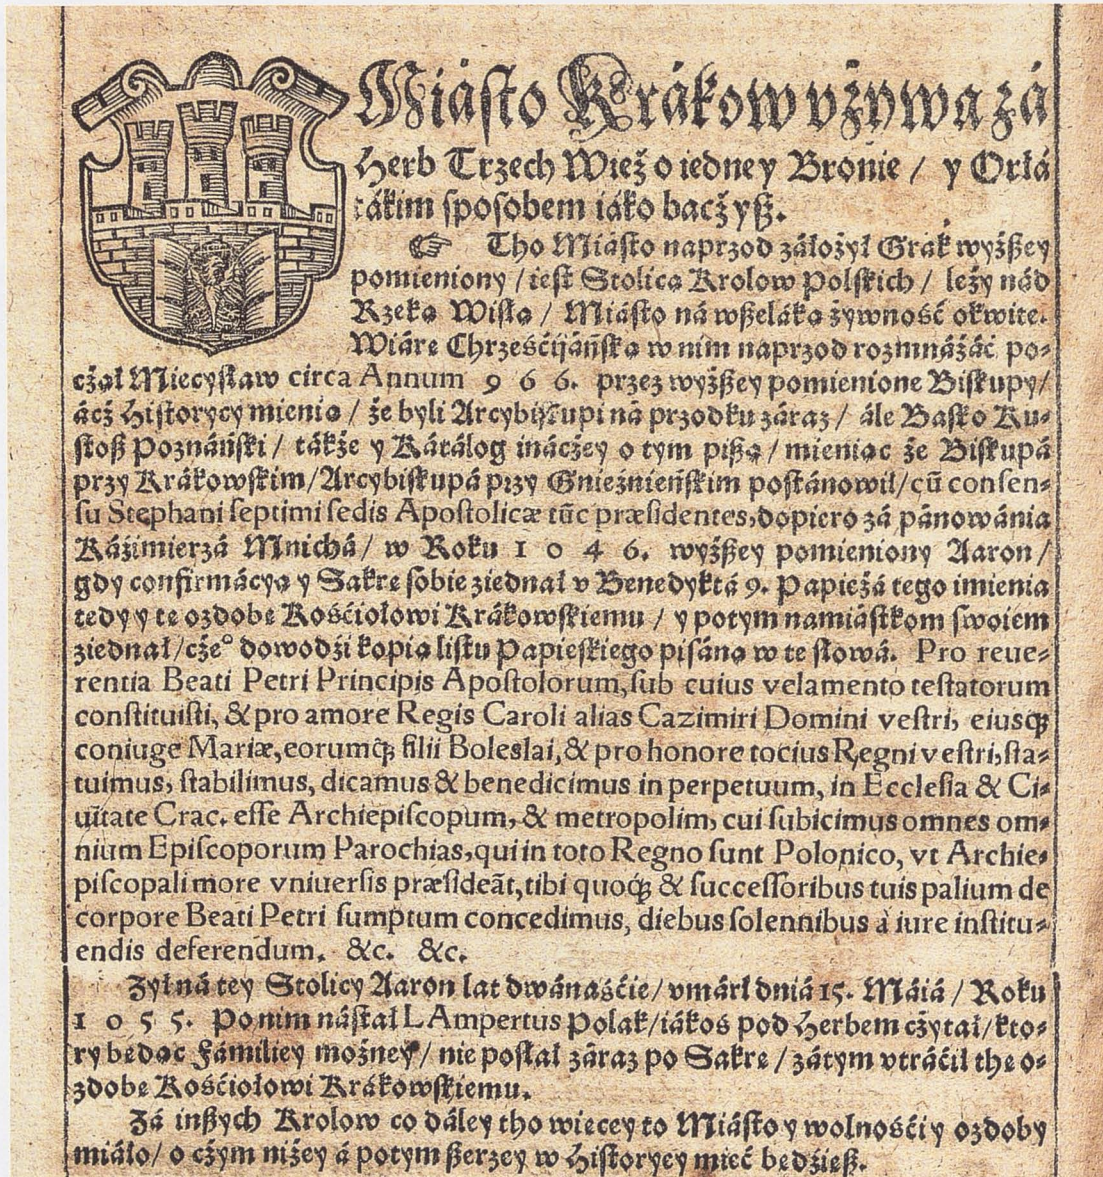 Miásto Krákow vżywa zá
Herb Trzech Wież o iedney Bronie / y Orłá
tákim sposobem iáko baczysz.
☞ Tho Miásto naprzod záłożył Grák wyższey
pomieniony / iest Stolicą Krolow Polskich / leży nád
Rzeką Wisłą / Miásto ná wszeláką żywność okwite.
Wiárę Chrześćijáńską w nim naprzod rozmnáżáć po-
czął Miecysław circa Annum 9 6 6. przez wyższey pomienione Biskupy/
ácż Historycy mienią / że byli Arcybiskupi ná przodku záraz / ále Basko Ku-
stosz Poznáński / tákże y Kátálog ináczey o tym piszą / mieniąc że Biskupá
przy Krákowskim/Arcybiskupá przy Gnieźnieńskim postánowił/cū consen-
su Stephani septimi sedis Apostolicæ tūc præsidentes, dopiero zá pánowánia
Káźimierzá Mnichá / w Roku 1 0 4 6. wyższey pomieniony Aaron /
gdy confirmácyą y Sakrę sobie ziednał v Benedyktá 9. Papieżá tego imienia
tedy y tę ozdobę Kośćiołowi Krákowskiemu / y potym namiástkom swoiem
ziednał/czeº dowodźi kopia listu Papieskiego pisána w te słowá. Pro reue-
rentia Beati Petri Principis Apostolorum, sub cuius velamento testatorum
constituisti, & pro amore Regis Caroli alias Cazimiri Domini vestri, eiusq́;
coniuge Mariæ, eorumq́; filii Boleslai, & pro honore tocius Regni vestri, sta-
tuimus, stabilimus, dicamus & benedicimus in perpetuum, in Ecclesia & Ci-
uitate Crac. esse Archiepiscopum, & metropolim, cui subicimus omnes om-
nium Episcoporum Parochias, qui in toto Regno sunt Polonico, vt Archie-
piscopali more vniuersis præsideāt, tibi quoq́; & successoribus tuis palium de
corpore Beati Petri sumptum concedimus, diebus solennibus à iure institu-
endis deferendum. &c. &c.
Zył ná tey Stolicy Aaron lat dwánaśćie / vmárł dniá 15. Máiá / Roku
1 0 5 5. Po nim nástał LAmpertus Polak/iákoś pod Herbem czytał/kto-
ry będąc Fámiliey możney / nie posłał záraz po Sakrę / zátym vtráćił tę o-
zdobę Kośćiołowi Krákowskiemu.
Zá inszych Krolow co dáley tho więcey to Miásto y wolnośći y ozdoby
miáło/ o czym niżey á potym szerzey w Historyey mieć będźiesz.